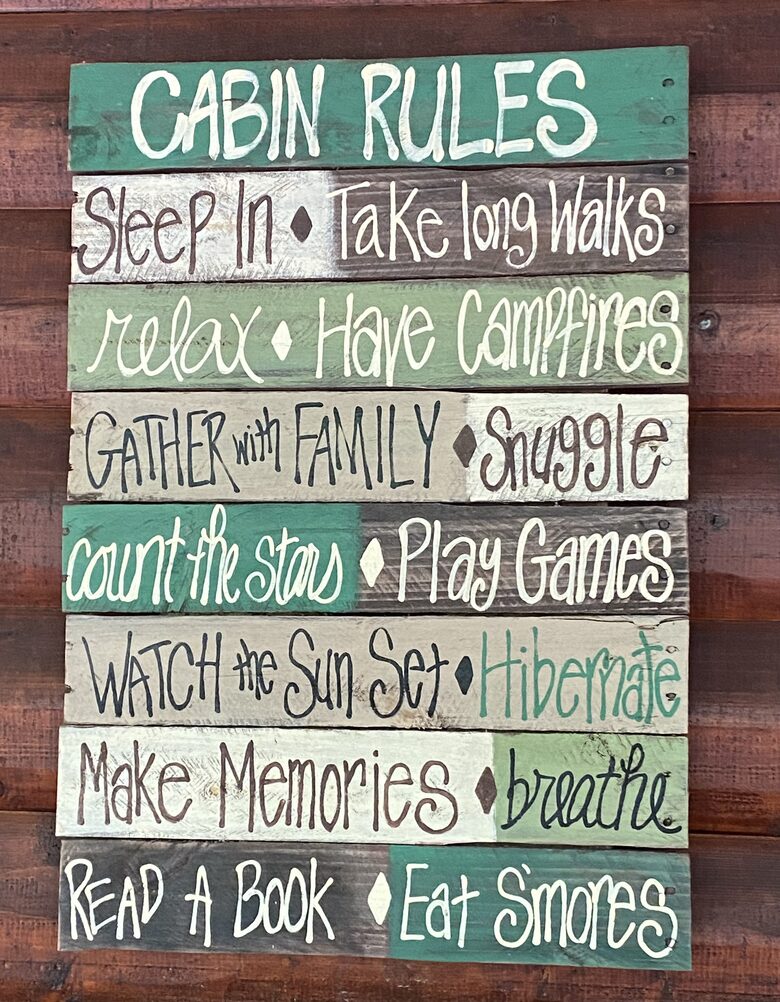 CABIN RULES
Sleep In ♦ Take long Walks
relax ♦ Have Campfires
GATHER with FAMILY ♦ Snuggle
count the stars ♦ Play Games
WATCH the Sun Set ♦ Hibernate
Make Memories ♦ breathe
READ A BOOK ♦ Eat S'mores